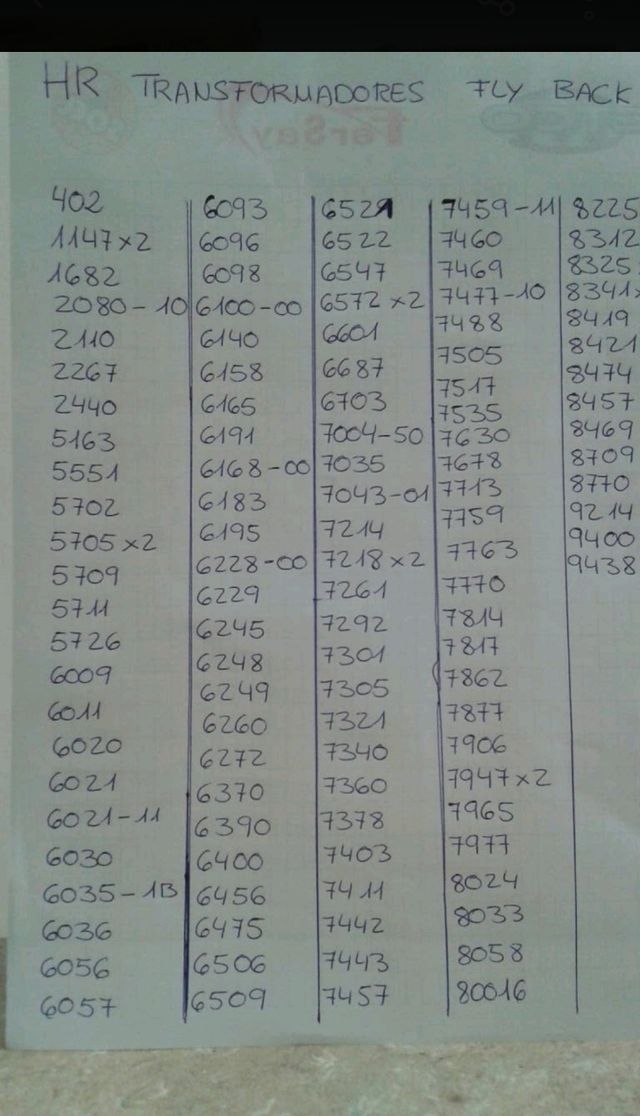 HR TRANSFORMADORES FLY BACK
402
1147x2
1682
2080-10
2110
2267
2440
5163
5551
5702
5705x2
5709
5711
5726
6009
6011
6020
6021
6021-11
6030
6035-1B
6036
6056
6057
6093
6096
6098
6100-00
6140
6158
6165
6191
6168-00
6183
6195
6228-00
6229
6245
6248
6249
6260
6272
6370
6390
6400
6456
6475
6506
6509
6521
6522
6547
6572x2
6601
6687
6703
7004-50
7035
7043-01
7214
7218x2
7261
7292
7301
7305
7321
7340
7360
7378
7403
7411
7442
7443
7457
7459-11
7460
7469
7477-10
7488
7505
7517
7535
7630
7678
7713
7759
7763
7770
7814
7817
7862
7877
7906
7947x2
7965
7977
8024
8033
8058
80016
8225
8312
8325
8341x
8419
8421
8474
8457
8469
8709
8770
9214
9400
9438